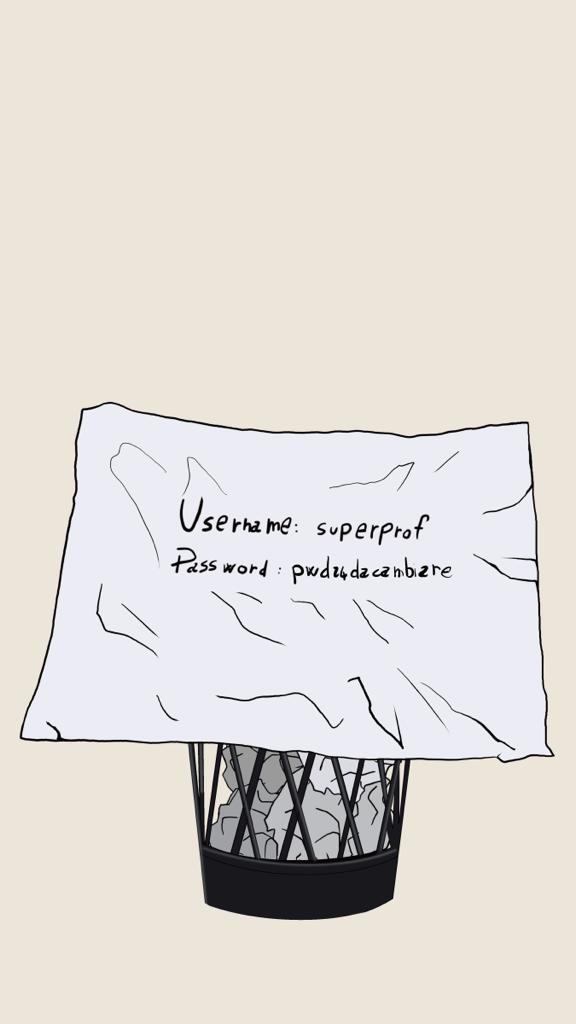 Username: superprof
Password : pwd24dacambiare